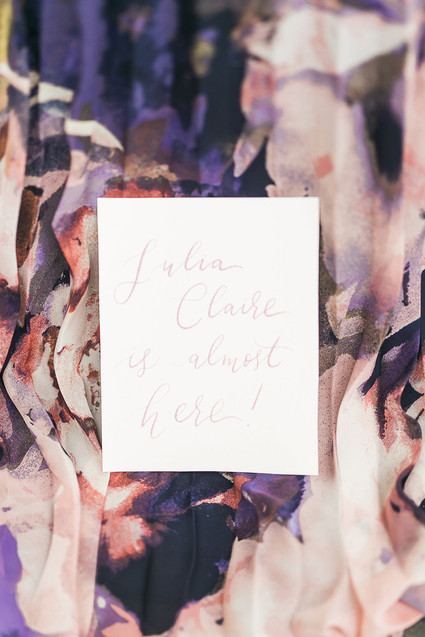 Julia
Claire
is almost
here!